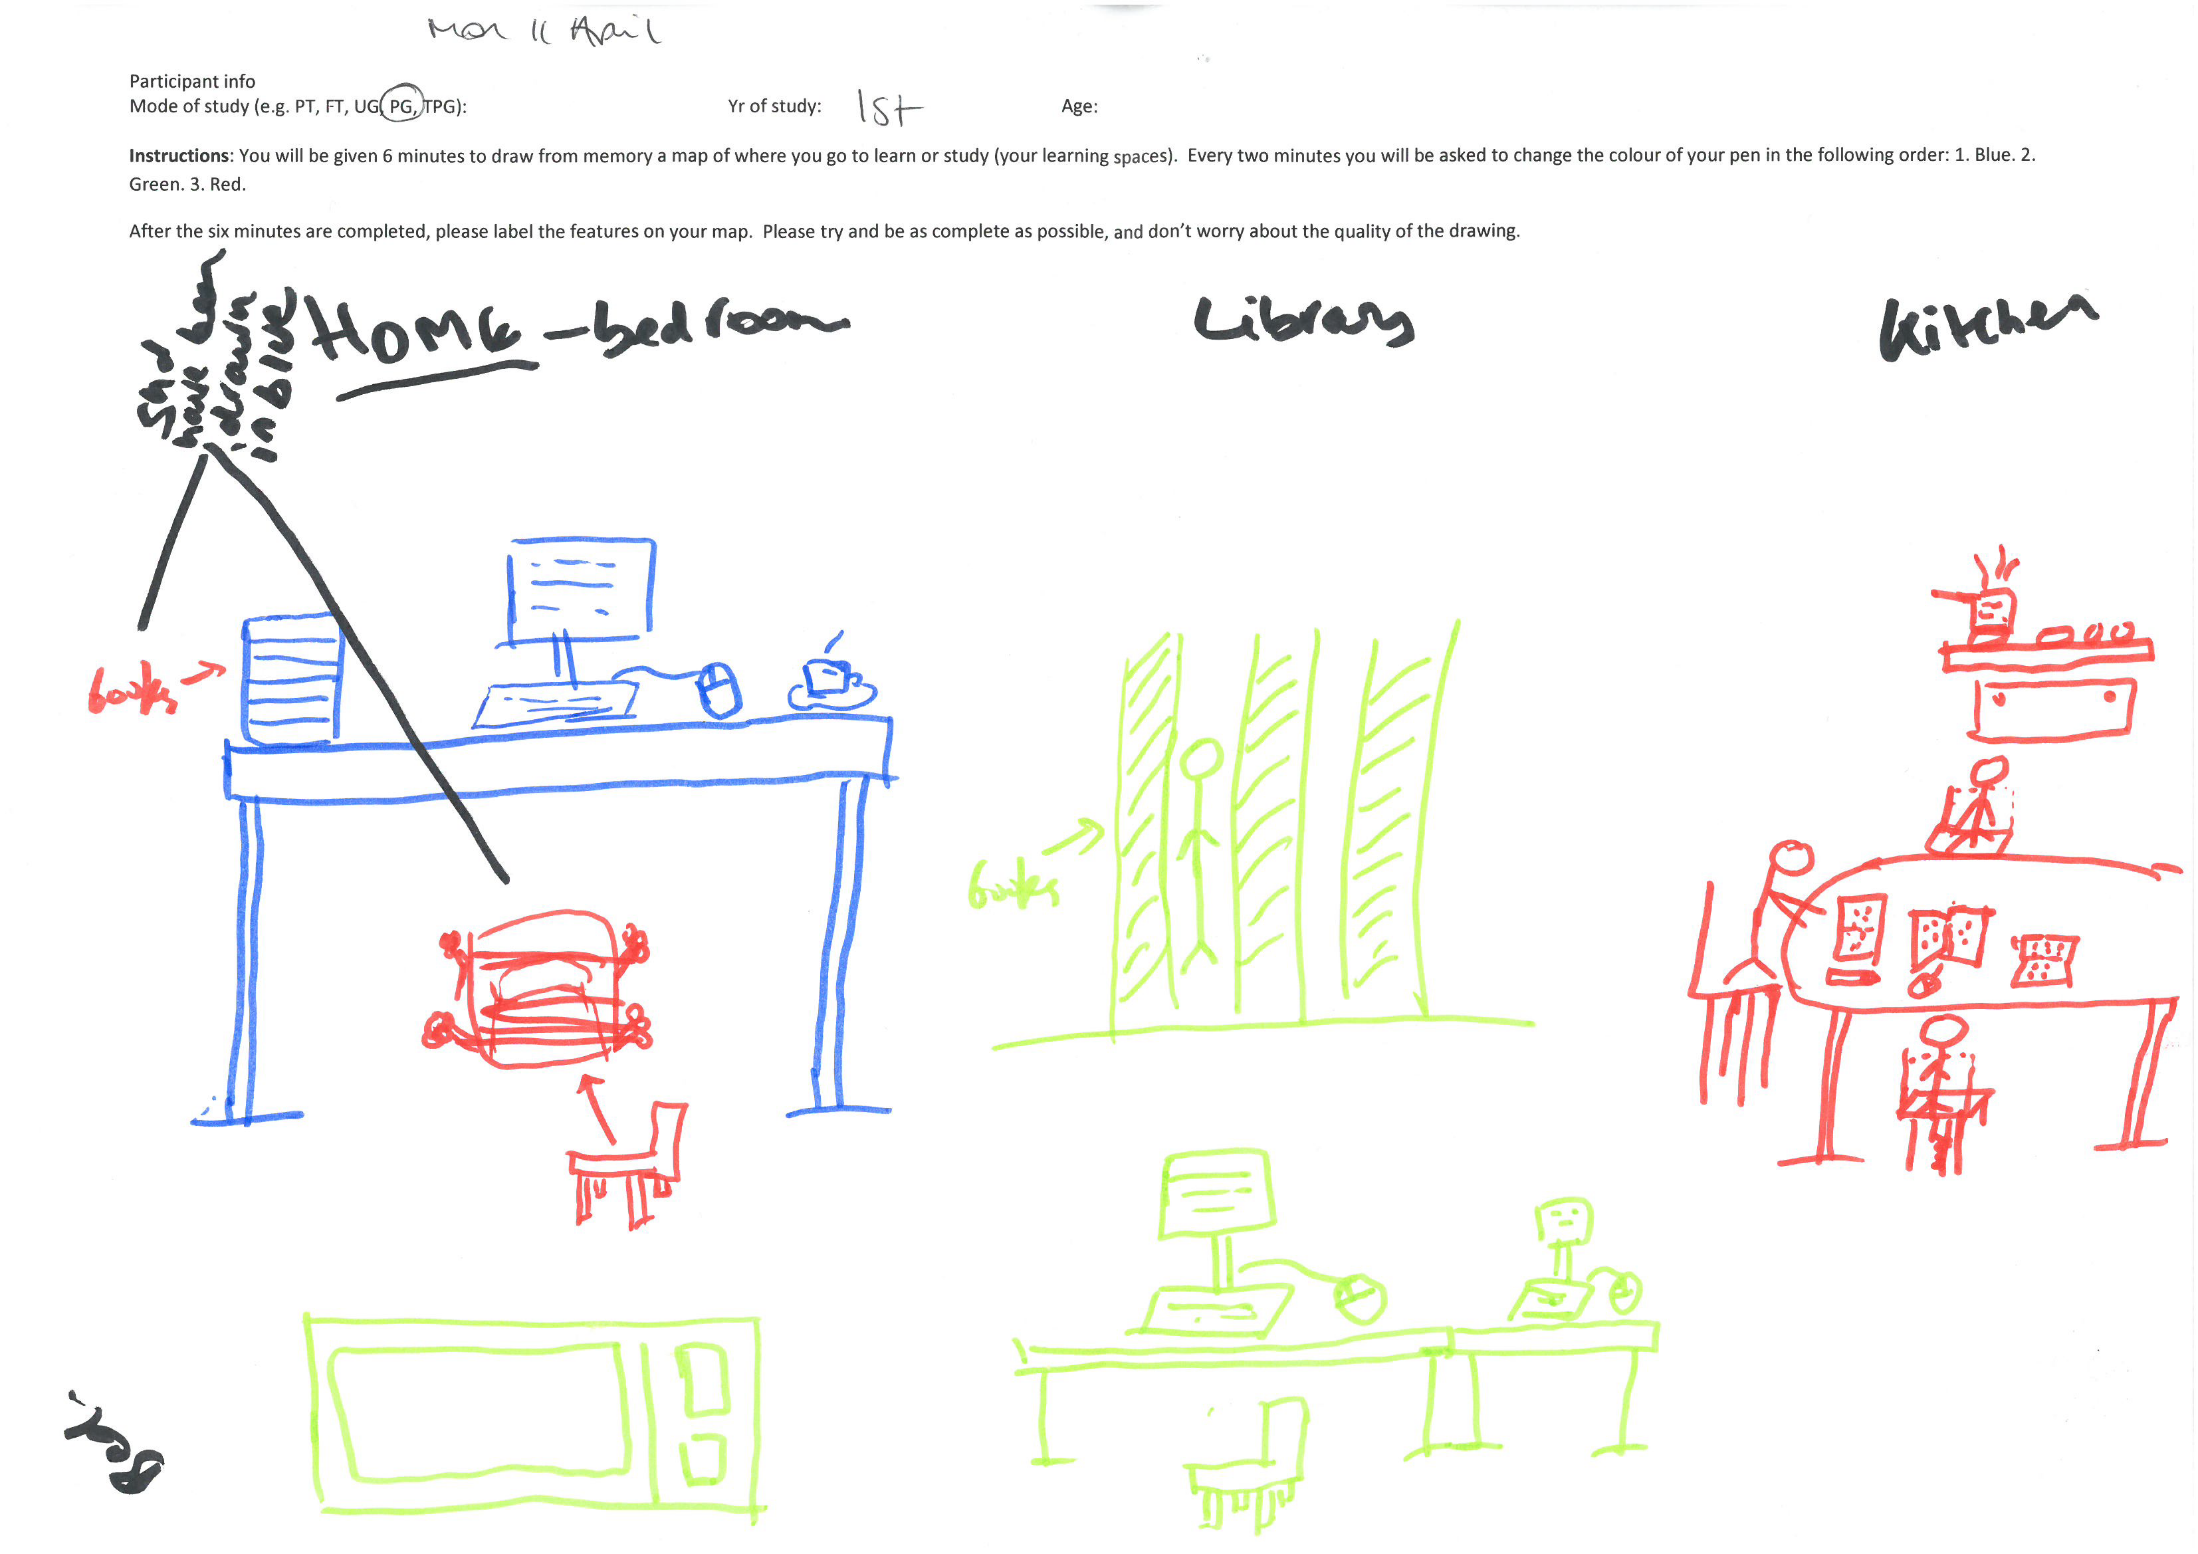 Mon 11 April
Participant info
Mode of study (e.g. PT, FT, UG, PG, TPG):
Yr of study: 1st
Age:
Instructions: You will be given 6 minutes to draw from memory a map of where you go to learn or study (your learning spaces). Every two minutes you will be asked to change the colour of your pen in the following order: 1. Blue. 2.
Green. 3. Red.
After the six minutes are completed, please label the features on your map. Please try and be as complete as possible, and don't worry about the quality of the drawing.
have
drawn
in blue
HOME - bedroom
Library
Kitchen
books
books